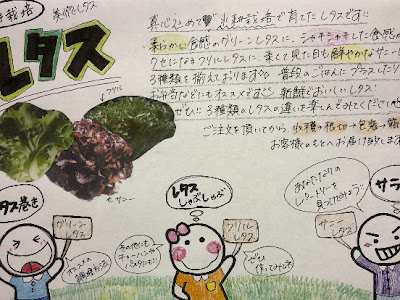 栽培
美作レタス
レタス
フリル
サニー
真心こめて♥水耕栽培で育てたレタスです
柔らかい食感のグリーンレタスに、シャキシャキした食感が
クセになるフリルレタスに、柔くて見た目も鮮やかなサニーレ
3種類を揃えております♪ 普段のごはんにプラスしたり
お弁当などにもオススメです 新鮮でおいしいレタス
ぜひ!! 3種類のレタスの違いを楽しんでみてくださいね
ご注文を頂いてから、収穫→根切→包装→箱
お客様のもとへお届け致しま
タス巻き
グリーン
レタス
オススメ
調理方法
レタス
しゃぶしゃぶ
その他にも
チャーハンや
パスタにも
フリルレ
タス
ぜひ
作ってみてネ
あなたなりの
レパートリーを
見つけてみよう
サニー
レタス
サラ